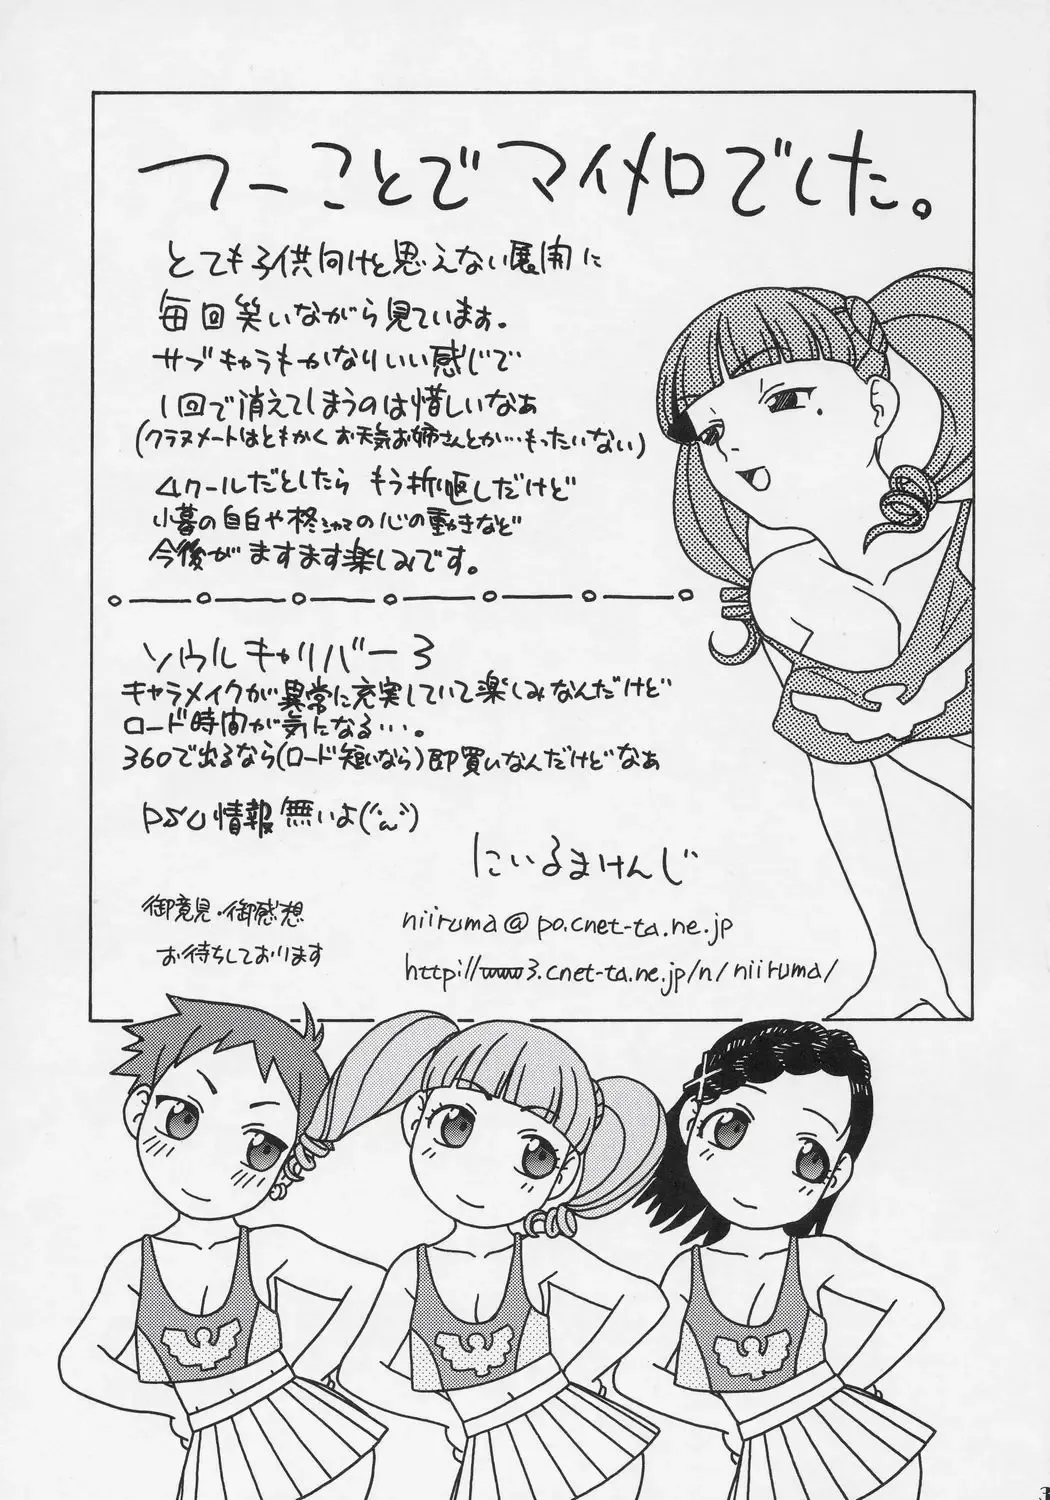 つーことでマイメロでした。
とても子供向けと思えない展開に
毎回笑いながら見ています。
サブキャラもかなりいい感じで
1回で消えてしまうのは惜しいなぁ
(クラスメートはともかくお天気お姉さんとか…もったいない)
4クールだとしたらもう折り返しだけど
小暮の自白や柊の心の動きなど
今後がますます楽しみです。
ソウルキャリバー3
キャラメイクが異常に充実していて楽しみなんだけど
ロード時間が気になる…。
360で出るなら(ロード短いなら)即買いなんだけどなぁ
PSU情報無いよ(´д`)
にいるまけんじ
御意見・御感想
お待ちしております
niiruma@po.cnet-ta.ne.jp
http://www3.cnet-ta.ne.jp/n/niiruma/
3